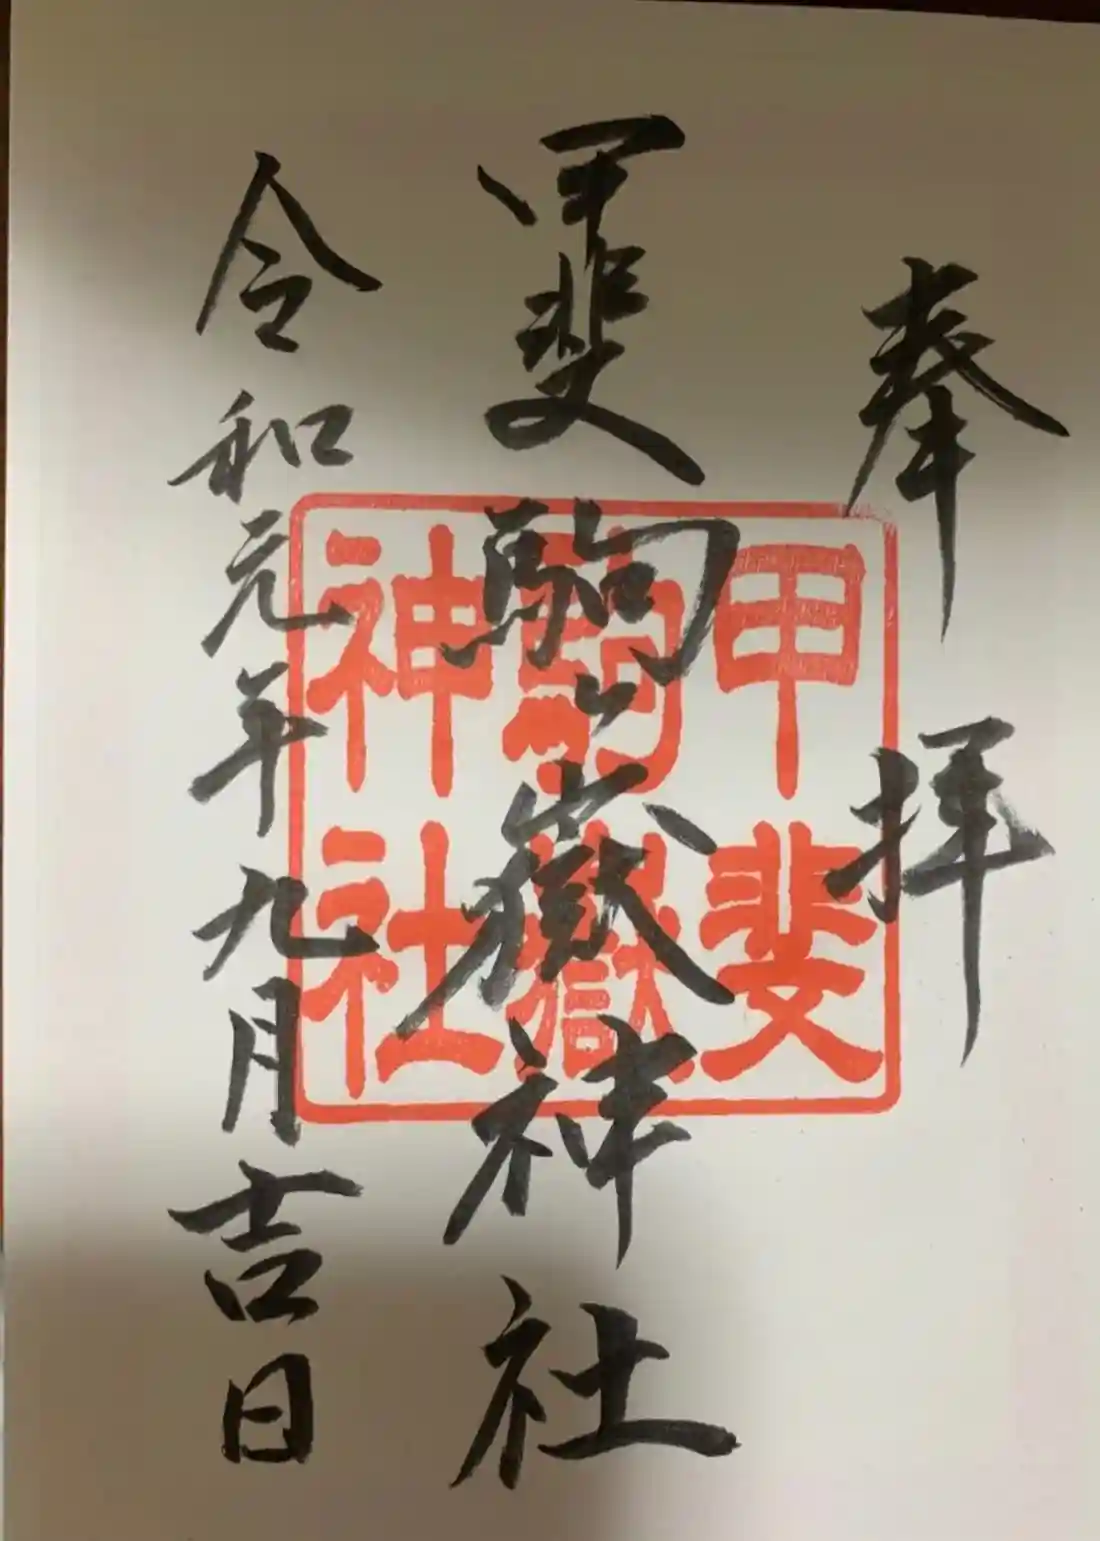 奉拝
甲斐駒ヶ嶽神社
令和元年九月吉日
甲斐
駒嶽
神社